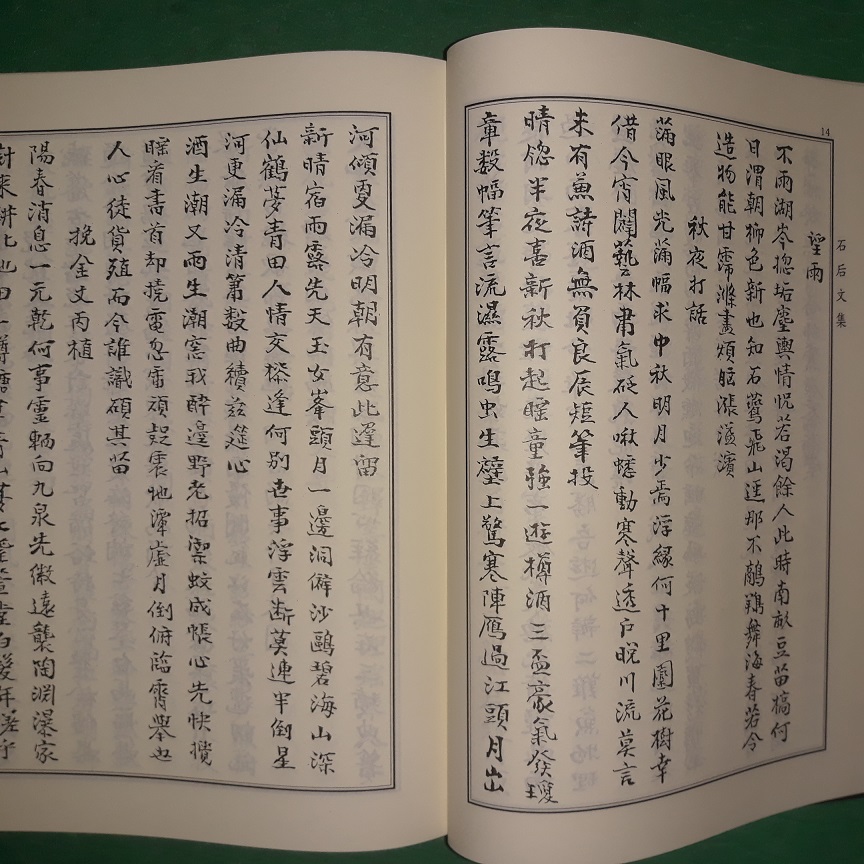 14
石后文集
望雨
不雨湖岑揔垢塵輿情怳若渴餘人此時南畝豆苗槁何
日渭朝柳色新也知石鷰飛山逕那不鷸鷄舞海春若今
造物能甘霈滌盡煩眩漲滋濱
秋夜打話
滿眼風光滿幅求中秋明月少焉浮緣何十里園花樹幸
借今宵闢藝林肅氣砭人啾蟋動寒聲透戶晼川流莫言
未有兼詩酒無負良辰短筆投
晴牕半夜喜新秋打起睡童强一遊樽酒三盃豪氣發瓊
章數幅筆言流濕露鳴虫生壁上驚寒陣鴈過江頭月出
河傾夏漏冷明朝有意此遅留
新晴宿雨露先天玉女峯頭月一邊洞僻沙鷗碧海山深
仙鶴夢青田人情交際逢何別世事浮雲断莫連半倒星
河更漏冷清簫数曲續玆筵心
酒生潮又雨生潮窓我醉邊野老招禦蚊成帳心先快攪
睡看書首却撓雷忽雷頑起震地潭虛月倒俯臨霄擧世
人心徒貨殖而今誰識碩其苗
挽金丈丙植
陽春消息一元乾何事靈輀向九泉先徽遠襲陶淵瀑家